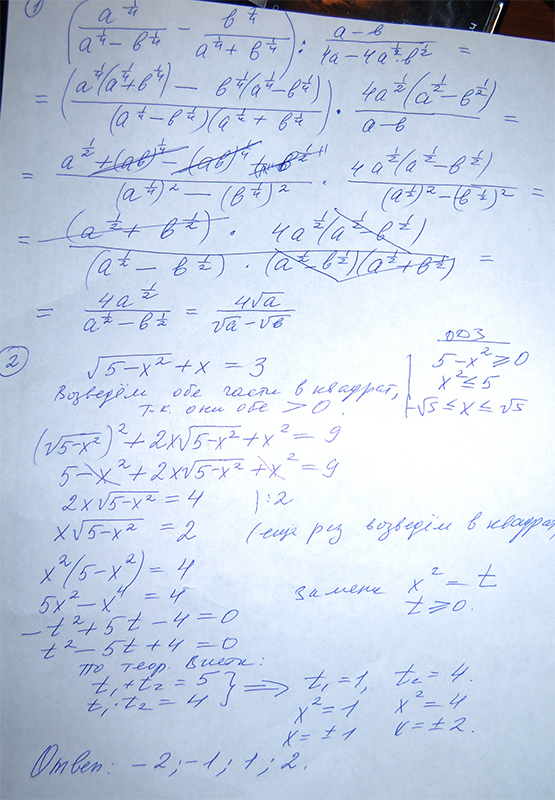 1) (a^{1/4}/(a^{1/4} - b^{1/4}) - b^{1/4}/(a^{1/4} + b^{1/4})) : (a - b)/(4a - 4a^{1/2}·b^{1/2}) =
= (a^{1/4}(a^{1/4} + b^{1/4}) - b^{1/4}(a^{1/4} - b^{1/4}))/((a^{1/4} - b^{1/4})(a^{1/4} + b^{1/4})) · 4a^{1/2}(a^{1/2} - b^{1/2})/(a - b) =
= (a^{1/2} + (ab)^{1/4} - (ab)^{1/4} + b^{1/2})/((a^{1/4})^2 - (b^{1/4})^2) · 4a^{1/2}(a^{1/2} - b^{1/2})/((a^{1/2})^2 - (b^{1/2})^2) =
= (a^{1/2} + b^{1/2}) · 4a^{1/2}(a^{1/2} - b^{1/2})/((a^{1/2} - b^{1/2}) · (a^{1/2} - b^{1/2})(a^{1/2} + b^{1/2})) =
= 4a^{1/2}/(a^{1/2} - b^{1/2}) = 4√a/(√a - √b)
2) √(5-x²) + x = 3
ОДЗ
5 - x² ≥ 0
x² ≤ 5
-√5 ≤ x ≤ √5
Возведём обе части в квадрат,
т.к. они обе > 0.
(√(5-x²))² + 2x√(5-x²) + x² = 9
5 - x² + 2x√(5-x²) + x² = 9
2x√(5-x²) = 4 |:2
x√(5-x²) = 2 (ещё раз возведём в квадрат,
x²(5-x²) = 4
5x² - x⁴ = 4
замена x² = t
t ≥ 0.
-t² + 5t - 4 = 0
t² - 5t + 4 = 0
По теор. Виета:
t₁ + t₂ = 5
t₁ · t₂ = 4 } ⇒ t₁ = 1, t₂ = 4.
x² = 1 x² = 4
x = ±1 x = ±2.
Ответ: -2; -1; 1; 2.